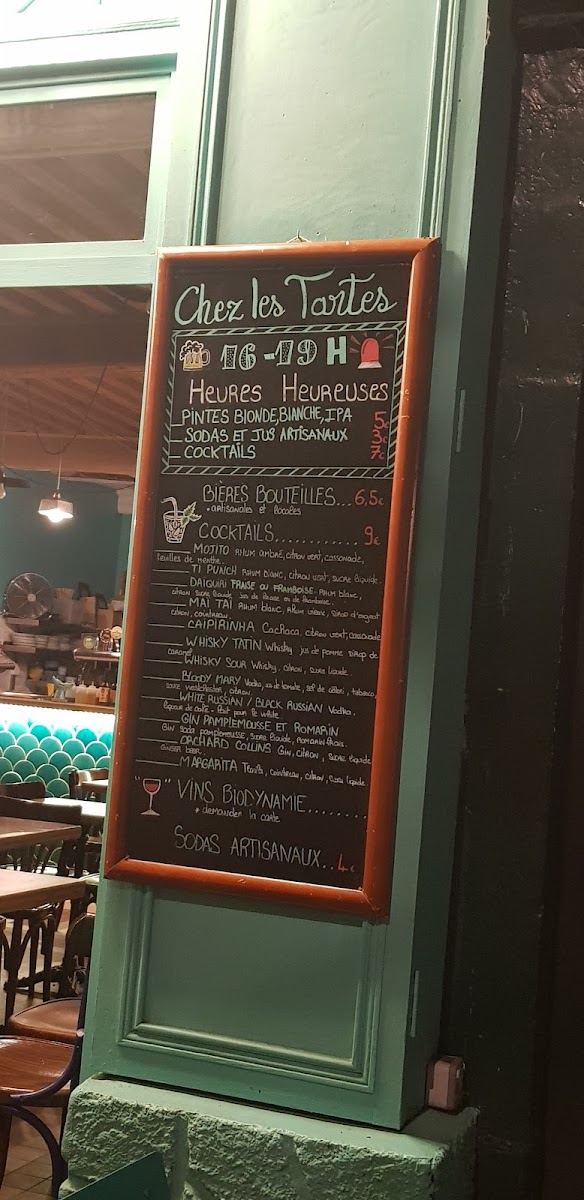 Chez les Tartes
16-19 H
HEURES HEUREUSES
PINTES BLONDE, BLANCHE, IPA 5€
SODAS ET JUS ARTISANAUX 3€
COCKTAILS 7€
BIÈRES BOUTEILLES... 6,5€
* artisanales et locales
COCKTAILS............ 9€
MOJITO RHUM AMBRÉ, citron vert, cassonade,
feuilles de menthe.
TI PUNCH RHUM blanc, citron vert, sucre liquide.
DAIQUIRI FRAISE OU FRAMBOISE RHUM blanc,
citron, sucre liquide
MAI TAI RHUM blanc, RHUM, sirop d'orgeat
citron, cointreau.
CAIPIRINHA Cachaca, citron vert, cassonade
WHISKY TATIN Whisky, jus de pomme, sirop de
caramel
WHISKY SOUR Whisky, citron, sucre liquide.
BLOODY MARY Vodka, jus de tomate, sel de céleri, tabasco,
citron
WHITE RUSSIAN / BLACK RUSSIAN Vodka,
liqueur de café - lait pour le white
GIN PAMPLEMOUSSE ET ROMARIN
GIN, soda pamplemousse, sucre liquide, romarin frais.
ORCHARD COLLINS GIN, citron, sucre liquide
GINGER BEER.
MARGARITA Tequila, cointreau, citron, sucre liquide.
" " VINS BIODYNAMIE........
* demander la carte
SODAS ARTISANAUX.. 4€